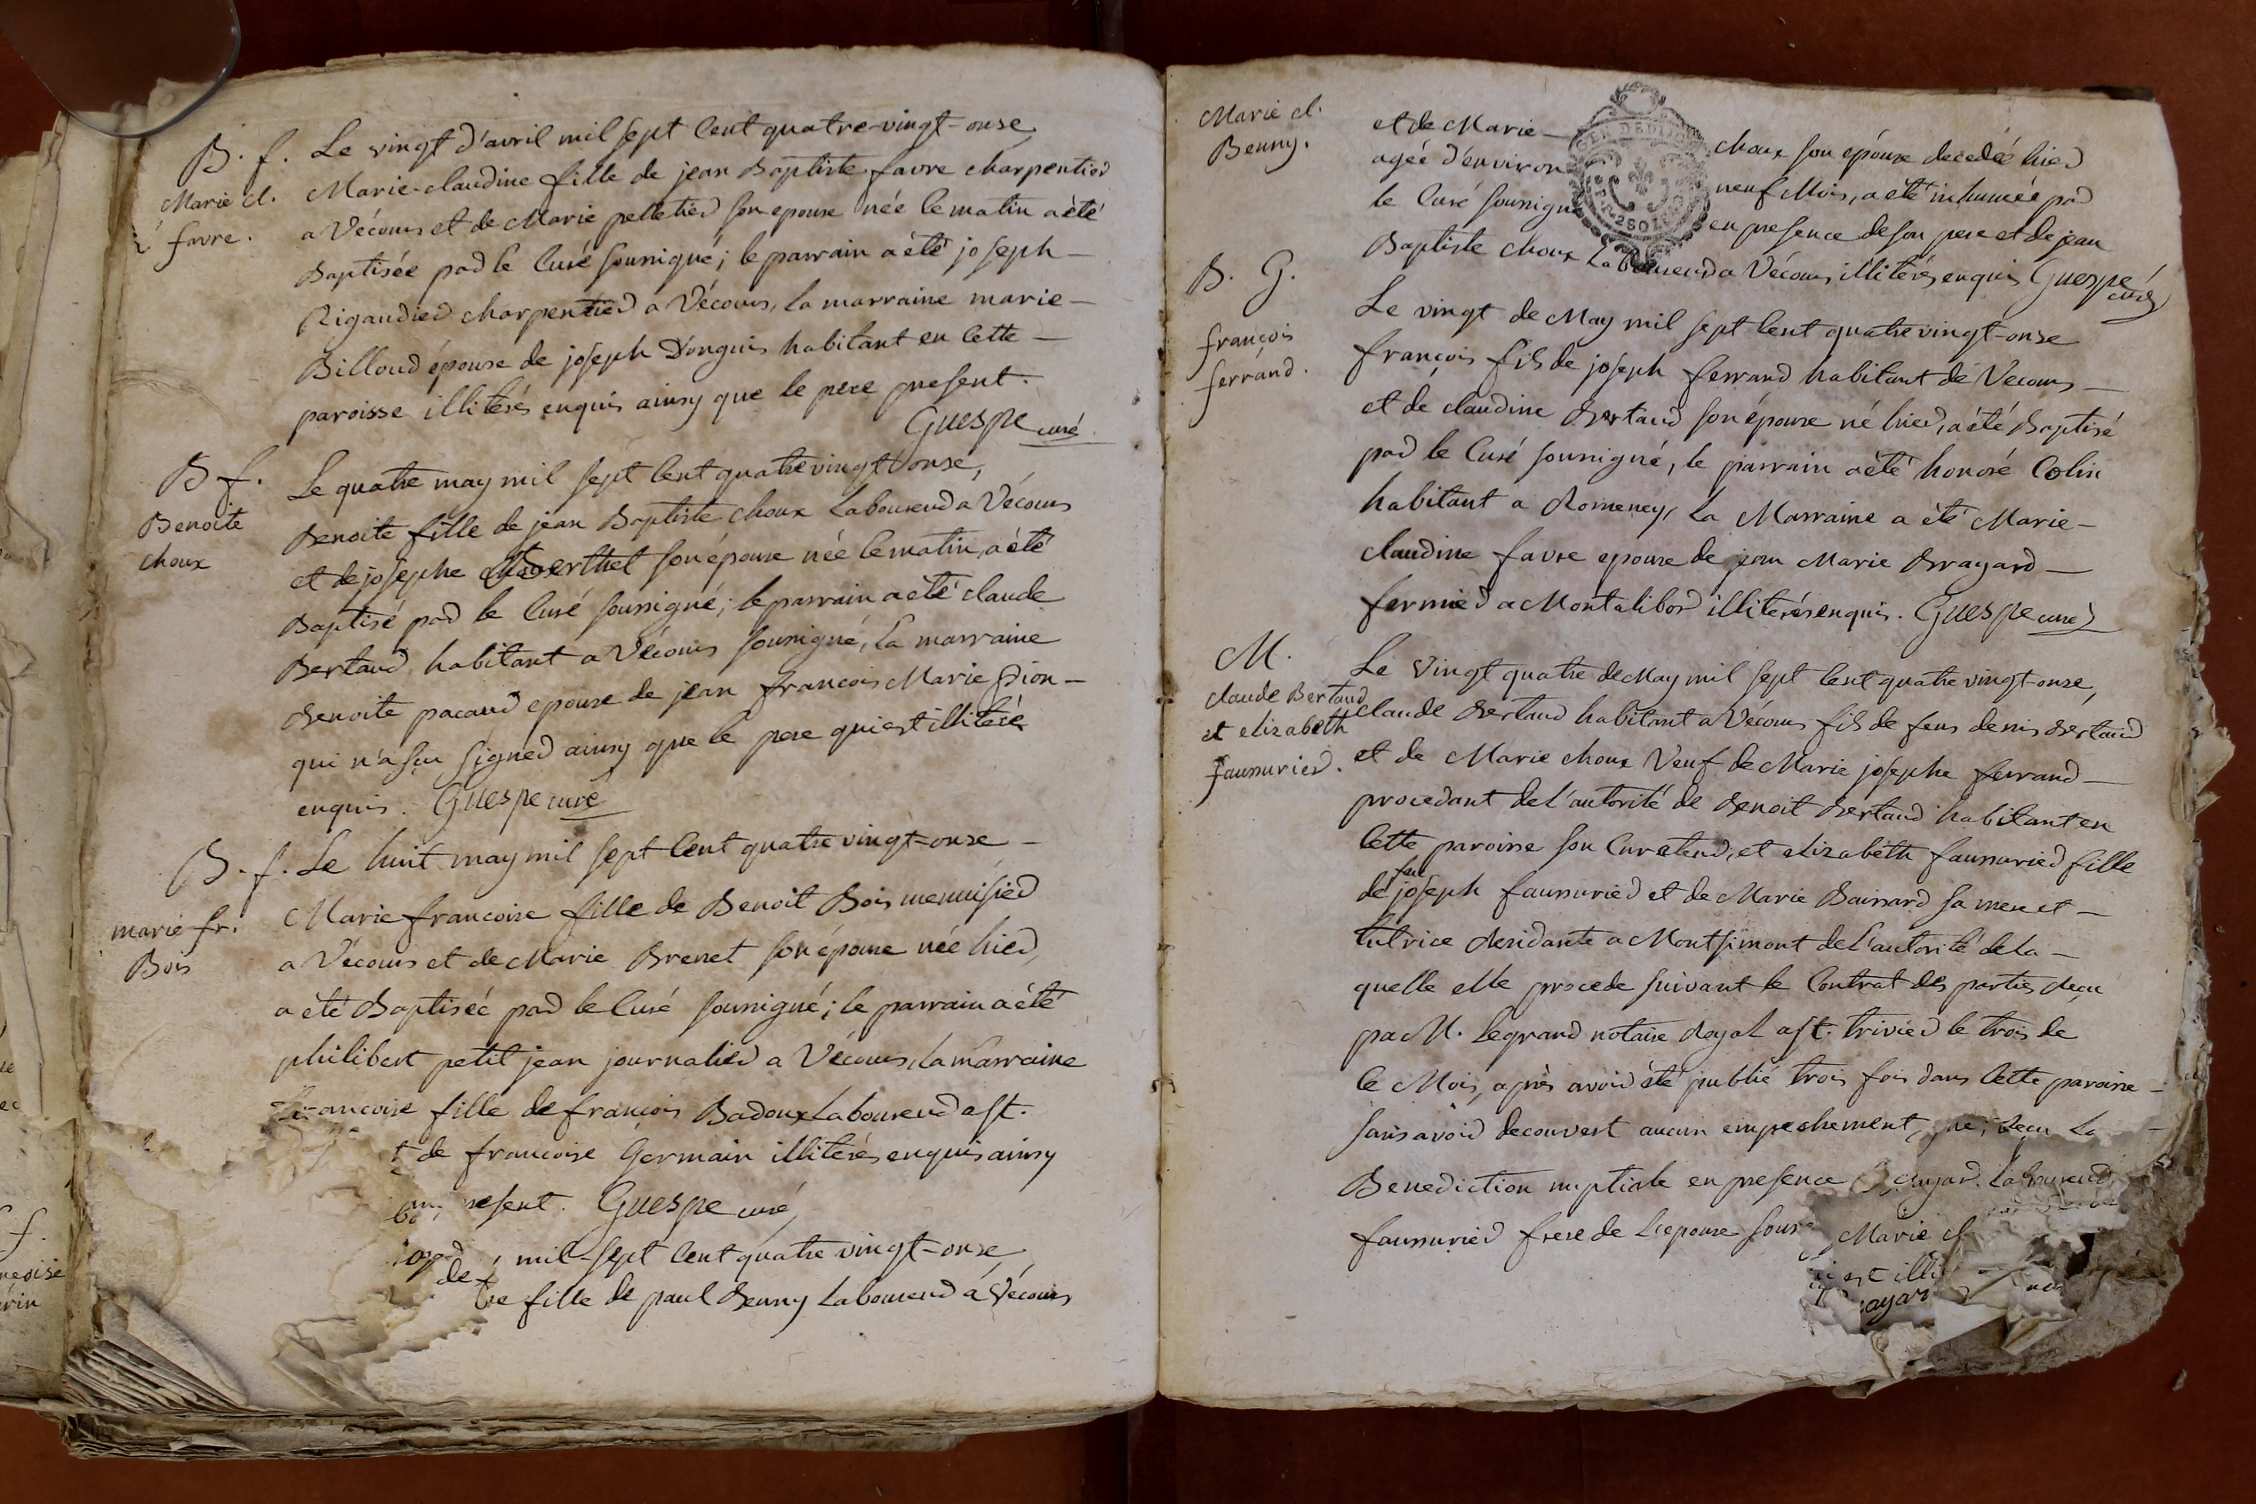 B. f.
Marie cl.
favre.
Le vingt d'avril mil sept cent quatre-vingt-onse,
Marie-claudine fille de jean Baptiste favre charpentier
a Vécours et de Marie pelletier son epouse née le matin a été
Baptisée par le Curé soussigné; le parrain a été joseph
Rigaudier charpentier a Vécours, la marraine marie
Billoud épouse de joseph Donguis habitant en cette
paroisse illiterés enquis ainsy que le pere present.
Guespe curé
B f.
Benoite
choux
Le quatre may mil sept cent quatre vingt onse,
Benoite fille de jean Baptiste choux Laboureur a Vécours
et de josephe Berthet son épouse née le matin, a été
Baptisé par le Curé soussigné; le parrain a été claude
Bertaud habitant a Vécours soussigné, la marraine
Benoite pacaud epouse de jean francois Marie pion
qui n'a sçu signer ainsy que le pere qui est illiteré
enquis. Guespe curé
B. f.
marie fr.
Bois
Le huit may mil sept cent quatre vingt-onse
Marie francoise fille de Benoit Bois menuisier
a Vécours et de Marie Brenet son épouse née hier,
a été Baptisée par le Curé soussigné; le parrain a été
philibert petit jean journalier a Vécours, la marraine
francoise fille de françois Badoux Laboureur a St.
de francoise Germain illiterés enquis ainsy
resent. Guespe curé,
mil-sept cent quatre vingt-onse,
fille de paul Benny Laboureur á Vécours
Marie cl.
Benny.
et de Marie choux son épouse decedée hier
agée d'environ neuf Mois, a été inhumée par
le Curé soussigné en presence de son pere et de jean
Baptiste choux Laboureur a Vécours illiterés enquis Guespe
curé
B. G.
françois
ferrand.
Le vingt de May mil sept cent quatre vingt-onse
françois fils de joseph ferrand habitant de Vecours
et de claudine Bertaud son épouse né hier, a été Baptisé
par le Curé soussigné, le parrain a été honoré Colin
habitant a Romeney, la Marraine a été Marie
claudine favre epouse de jean Marie Bragard
fermier a Montalibor illiterés enquis. Guespe curé
M.
claude Bertaud
et elizabeth
faussurier.
Le Vingt quatre de May mil sept cent quatre vingt-onse,
claude Bertaud habitant a Vécours fils de feus denis Bertaud
et de Marie choux Veuf de Marie josephe ferrand
procedant de l'autorité de Benoit Bertaud habitant en
cette paroisse son Curateur, et elizabeth faussurier fille
de feu joseph faussurier et de Marie Baissard sa mere et
tutrice Residante a Montsimont de l'autorité de la
quelle elle procede suivant le Contrat des parties Reçu
par M. Legrand notaire Royal a St. trivier le trois de
ce Mois, après avoir été publié trois fois dans cette paroisse
sans avoir decouvert aucun empechement, reçu La
Benediction nuptiale en presence Laboureur
faussurier frere de L'epouse Marie
est illi